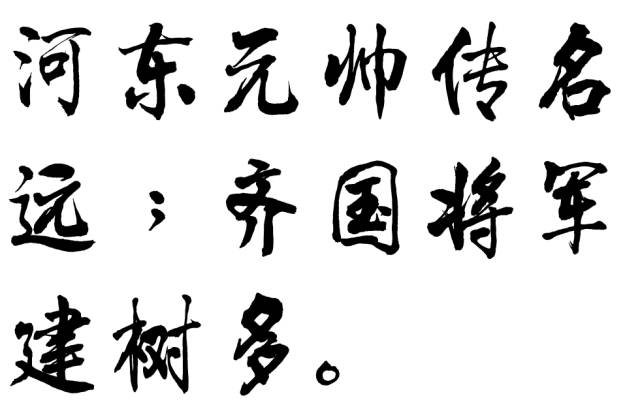 河东元帅传名
远；齐国将军
建树多。